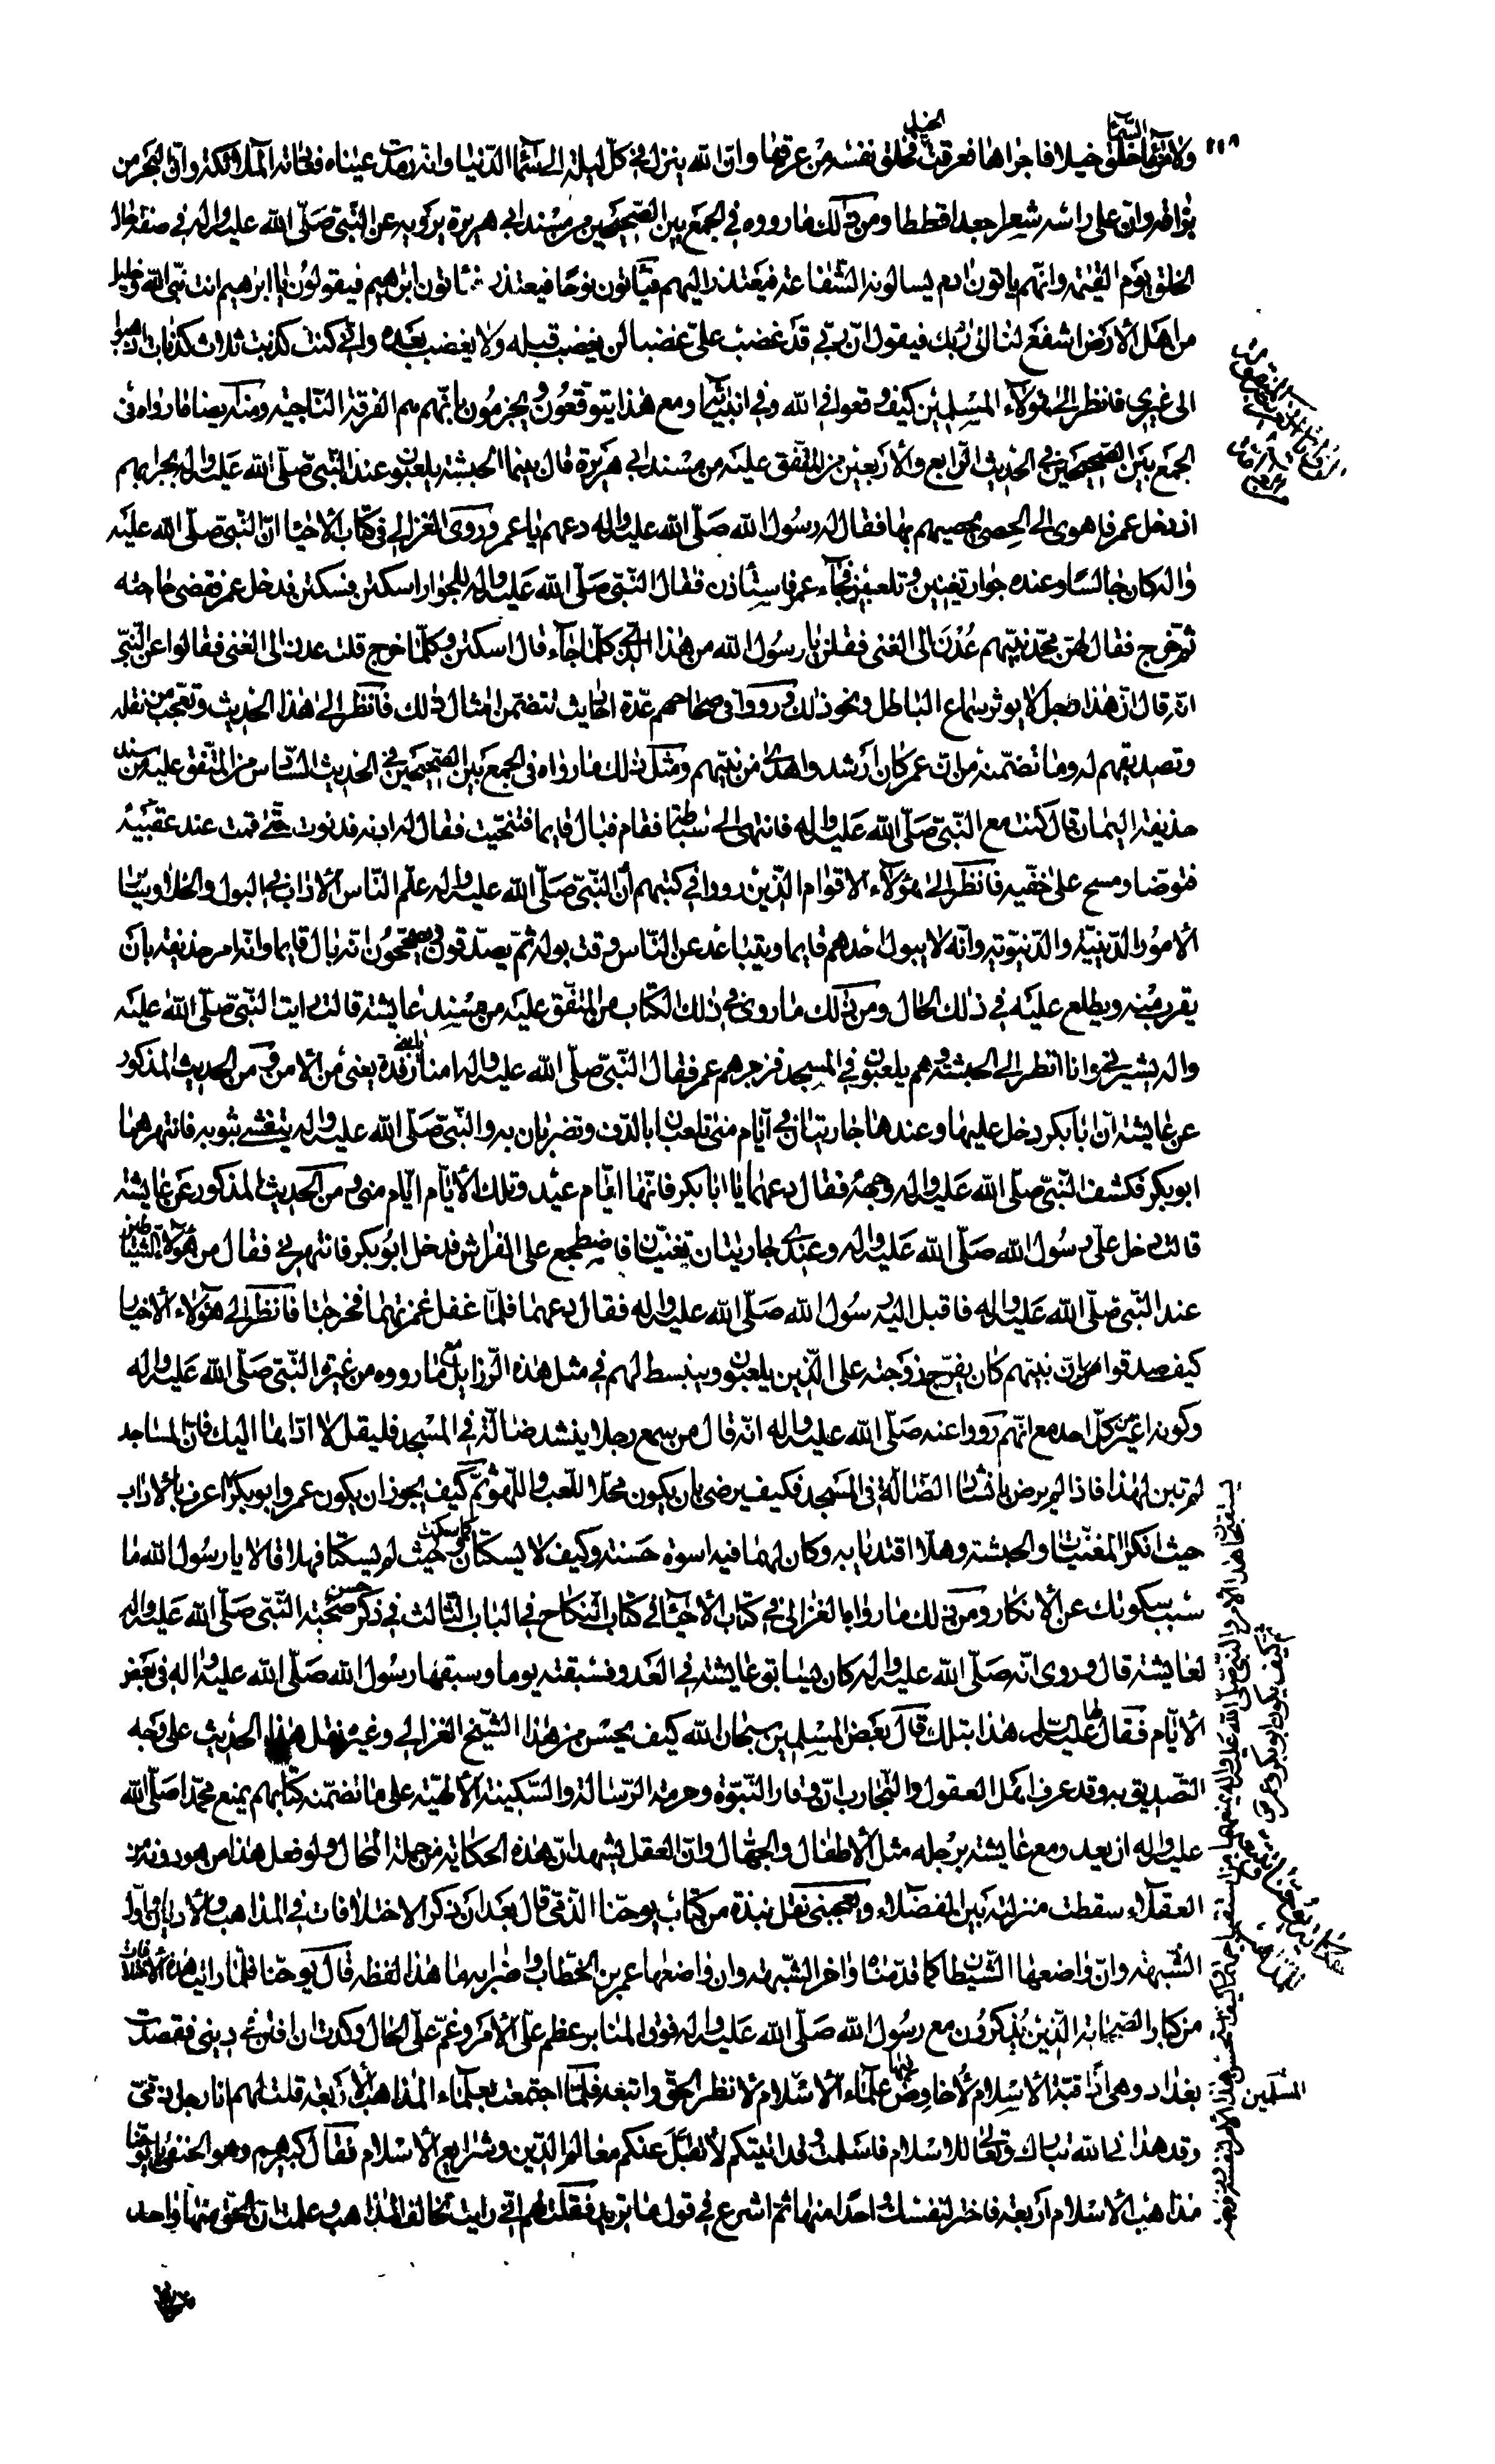 ولا من السماء خلق خيلا فاجراها فعرقت الخيل فخلق نفسه من عرقها وان الله ينزل في كل ليلة الى سماء الدنيا وانه رمدت عيناه فعادته الملائكة وان البحر من
بزاقه وان على راسه شعرا جعدا قططا ومن ذلك ما رووه في الجمع بين الصحيحين من مسند ابي هريرة يرويه عن النبي صلى الله عليه واله في صفة حال
الخلق يوم القيمة وانهم ياتون ادم يسالونه الشفاعة فيعتذر اليهم فياتون نوحا فيعتذر فياتون ابرهيم فيقولون يا ابرهيم انت نبي الله وخليله
من اهل الارض اشفع لنا الى ربك فيقول ان ربي قد غضب علي غضبا لن يغضب قبله ولا يغضب بعده واني كنت كذبت ثلاث كذبات اذهبوا
الى غيري فانظر الى هؤلاء المسلمين كيف وقعوا في الله وفي انبيائه ومع هذا يتوقعون ويجزمون بانهم هم الفرقة الناجية ومنه ايضا ما رواه في
الجمع بين الصحيحين في الحديث الرابع والاربعين من المتفق عليه من مسند ابي هريرة قال بينما الحبشة يلعبون عند النبي صلى الله عليه واله بحرابهم
اذ دخل عمر فاهوى الى الحصى فحصبهم بها فقال له رسول الله صلى الله عليه واله دعهم يا عمر وروى الغزالي في كتاب الاحياء ان النبي صلى الله عليه
واله كان جالسا وعنده جوار يغنين وتلعبن فجاء عمر فاستاذن فقال النبي صلى الله عليه واله للجوار اسكتن فسكتن فدخل عمر فقضى حاجته
ثم خرج فقال لهن محمد نبيهم عدن الى الغنى فقلن يا رسول الله من هذا الذي كلما جاء قال اسكتن وكلما خرج قلت عدن الى الغنى فقالوا عن النبي
انه قال ان هذا رجل لا يوثر سماع الباطل ونحو ذلك ورووا في صحاحهم عدة احاديث تتضمن امثال ذلك فانظر الى هذا الحديث وتعجب من نقله
وتصديقهم له وما تضمنه من ان عمر كان ارشد واهدى من نبيهم ومثل ذلك ما رواه في الجمع بين الصحيحين في الحديث السادس من المتفق عليه من مسند
حذيفة اليمان قال كنت مع النبي صلى الله عليه واله فانتهى الى سباطة فقام فبال قايما فتنحيت فقال له ادنه فدنوت حتى قمت عند عقبيه
فتوضا ومسح على خفيه فانظر الى هؤلاء الاقوام الذين رووا في كتبهم ان النبي صلى الله عليه واله علم الناس الاداب في البول والخلا وساير
الامور الدينية والدنيوية وانه لا يبول احدهم قايما ويتباعد عن الناس وقت بوله ثم يصدقون ويصححون انه بال قايما وانه امر حذيفة بان
يقرب منه ويطلع عليه في ذلك الحال ومن ذلك ما روى في ذلك الكتاب من المتفق عليه من مسند عايشة قالت رايت النبي صلى الله عليه
واله يسترني وانا انظر الى الحبشة وهم يلعبون في المسجد فزجرهم عمر فقال النبي صلى الله عليه واله امنا يا بني ارفدة يعني من الامن ومن الحديث المذكور
عن عايشة ان ابا بكر دخل عليها وعندها جاريتان في ايام منى تلعبان بالدف وتضربان به والنبي صلى الله عليه واله يتغشى بثوبه فانتهرهما
ابو بكر فكشف النبي صلى الله عليه واله وجهه فقال دعهما يا ابا بكر فانها ايام عيد وتلك الايام ايام منى ومن الحديث المذكور عن عايشة
قالت دخل علي رسول الله صلى الله عليه واله وعندي جاريتان تغنيان فاضطجع على الفراش فدخل ابو بكر فانتهرني فقال من هؤلاء الشياطين
عند النبي صلى الله عليه واله فاقبل اليه رسول الله صلى الله عليه واله فقال دعهما فلما غفل غمزتهما فخرجتا فانظر الى هؤلاء الاخيار
كيف صدقوا من ان نبيهم كان يفرج زوجته على الذين يلعبون وينبسط لهم في مثل هذه الرزايل مع ما رووه من غيرة النبي صلى الله عليه واله
وكونه اغير من كل احد مع انهم رووا عنه صلى الله عليه واله انه قال من سمع رجلا ينشد ضالة في المسجد فليقل لا اداها اليك فان المساجد
لم تبن لهذا فاذا لم يرض بانشاد الضالة في المسجد فكيف يرضى بان يكون محلا للعب واللهو ثم كيف يجوز ان يكون عمر وابو بكر اعرف بالاداب
حيث انكرا المغنيات والحبشة وهلا اقتديا به وكان لهما فيه اسوة حسنة وكيف لا يسكتان كما سكت وحيث لم يسكتا فهلا قالا يا رسول الله ما
سبب سكوتك عن الانكار ومن ذلك ما رواه الغزالي في كتاب الاحياء في كتاب النكاح في الباب الثالث في ذكر حسن صحبة النبي صلى الله عليه واله
لعايشة قال وروى انه صلى الله عليه واله كان يسابق عايشة في العدو فسبقته يوما وسبقها رسول الله صلى الله عليه واله في بعض
الايام فقال لها عليه السلم هذا بتلك قال بعض المسلمين سبحان الله كيف يحسن من هذا الشيخ الغزالي وغيره نقل هذا الحديث على وجه
التصديق به وقد عرف اهل العقول والتجارب ان وقار النبوة وحرمة الرسالة والسكينة الالهية على ما تضمنه كتابهم يمنع محمدا صلى الله
عليه واله ان يعدو مع عايشة برجله مثل الاطفال والجهال وان العقل يشهد ان هذه الحكاية من جملة المحال ولو فعل هذا من هو دونه من
العقلاء سقطت منزلته بين الفضلاء ويعجبني نقل نبذة من كتاب يوحنا الذمي قال بعد ان ذكر الاختلافات في المذاهب والاديان واول
الشبهة وان واضعها الشيطان كما قدمناه واخر الشبهة وان واضعها عمر بن الخطاب واضرابه ما هذا لفظه قال يوحنا فلما رايت هذه الاختلافات
من كبار الصحابة الذين يذكرون مع رسول الله صلى الله عليه واله فوق المنابر عظم علي الامر وغم علي الحال وكدت ان افتتن في ديني فقصدت
بغداد وهي قبة الاسلام لافاوض علماء الاسلام لانظر الحق واتبعه فلما اجتمعت بعلماء المذاهب الاربعة قلت لهم انا رجل ذمي
وقد هداني الله تبارك وتعالى للاسلام فاسلمت وقد اتيتكم لاتقبل عنكم معالم الدين وشرايع الاسلام فقال كبيرهم وهو الحنفي يا يوحنا
مذاهب الاسلام اربعة فاختر لنفسك واحدا منها ثم اشرع في قول ما تريد فقلت لهم اني رايت تخالف المذاهب وعلمت ان الحق منها واحد
المسلمين